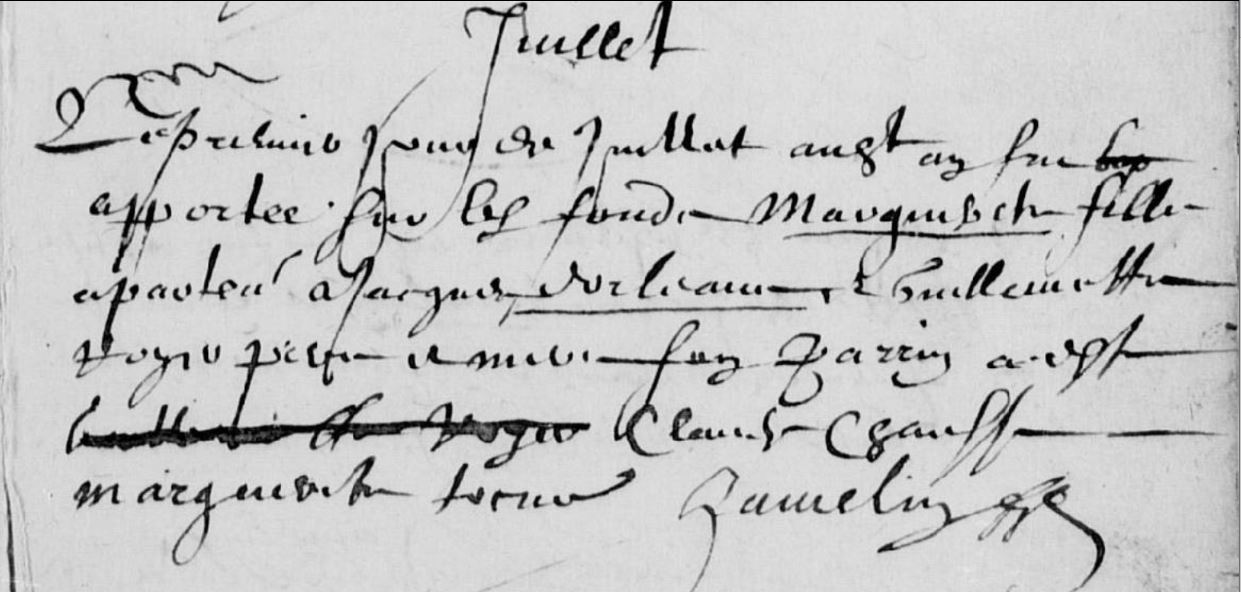 Juillet
Le premier Jour de Juillet audt an fut
apportee sur les fonds Marguerite fille
apartent a Jacques dorleans et Guillemette
Rogier pere et mere son parrin a este
Claude Chausse
marguerite Jamelin